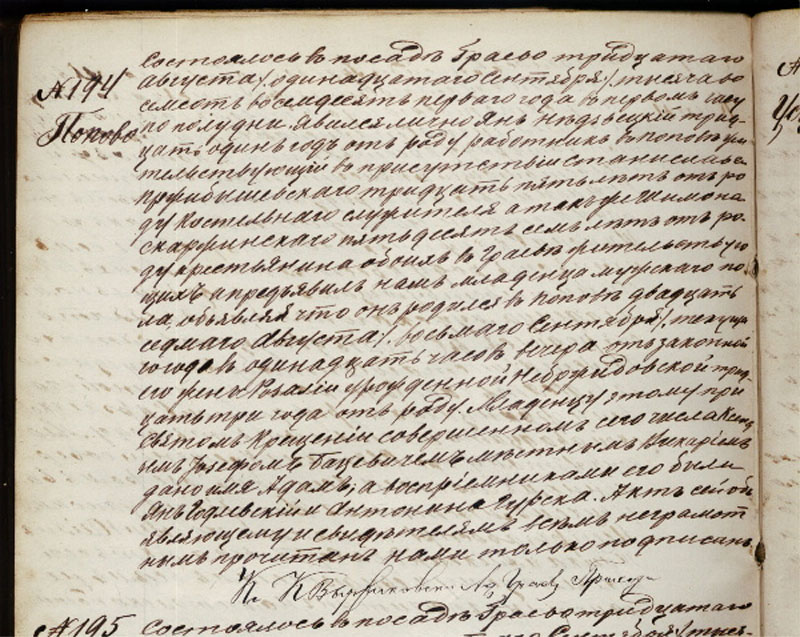 №194
Попово
Состоялось въ посадѣ Граево тридцатаго
августа /: одинадцатаго Сентября:/ тысяча во
семсотъ восемдесятъ перваго года въ первомъ часу
по полудни. явился лично Янъ трид-
цать одинъ годъ отъ роду работникъ въ Поповѣ жи
тельствующій въ присутствіи Станислава
Пржибышевскаго тридцать пять лѣтъ отъ ро
ду костельнаго служителя а также
Скаржинскаго пятьдесятъ семь лѣтъ отъ ро-
ду крестьянина обоихъ въ Граевѣ жительствую
щихъ и предъявилъ намъ младенца мужскаго по
ла, объявляя что онъ родился въ Поповѣ двадцать
седмаго Августа /: восьмаго Сентября:/ текуща
го года въ одинадцать часовъ вечера отъ законной
его жены Розаліи урожденной трид-
цать три года отъ роду. Младенцу этому при
Святомъ Крещеніи совершенномъ сего числа Ксенд
зомъ Іозефомъ Бацевичемъ мѣстнымъ Викаріемъ
дано имя Адамъ, а воспріемниками его были
Янъ и Антонина Гурска. Актъ сей объ
являющему и свидѣтелямъ всѣмъ неграмот
нымъ прочитанъ нами только подписанъ
№195
Состоялось въ посадѣ Граево тридцатаго